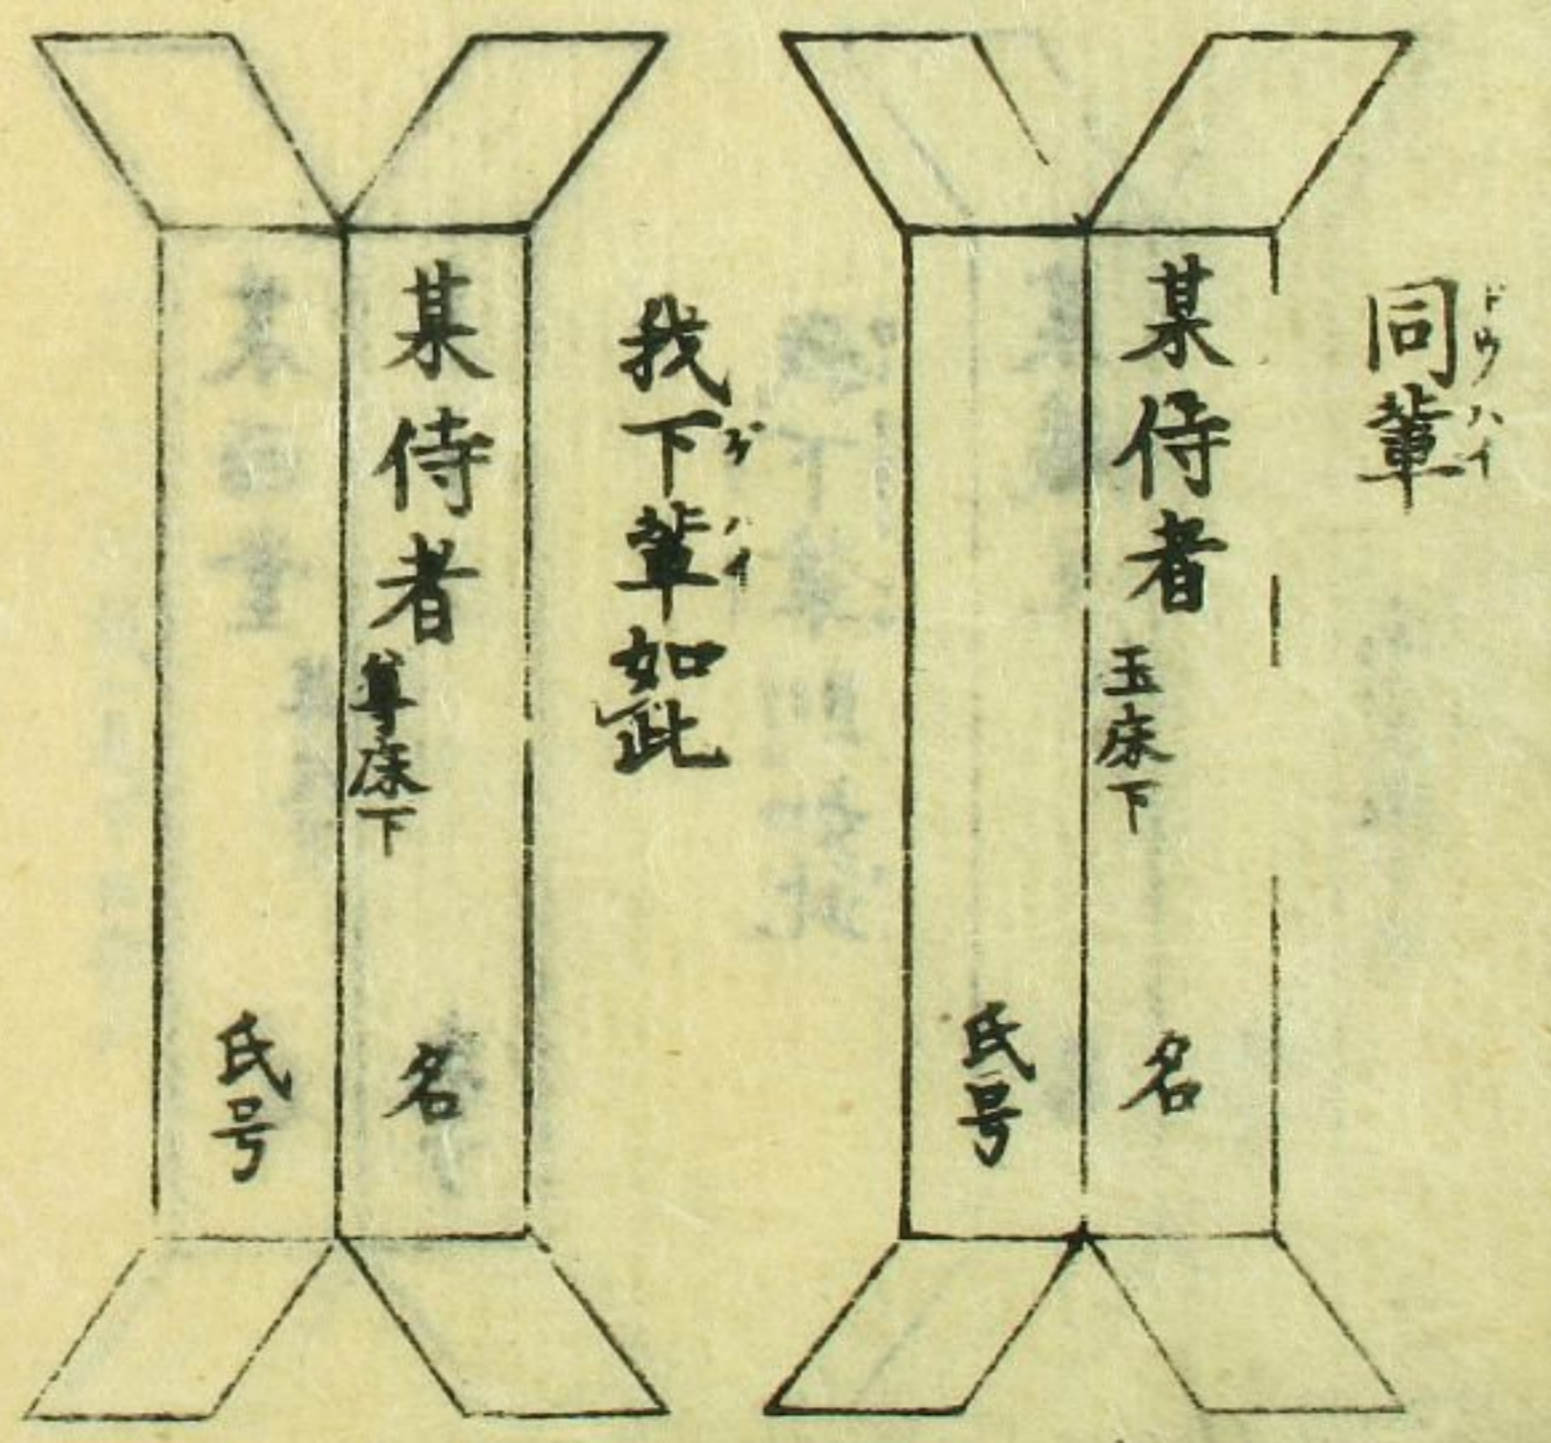 同輩
ドウハイ
某侍者 玉床下 名
氏号
我下輩如此
ゲハイ
某侍者 尊床下 名
氏号